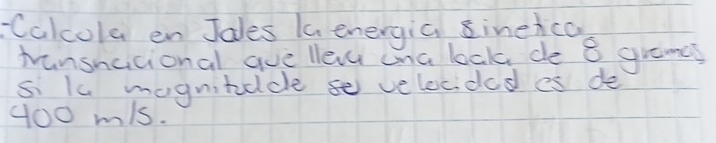 -Calcola en Joles la energia sinetica
transnacional que lleva una bala de 8 gramos
si la magnitudde se velocidad es de
400 m/s.